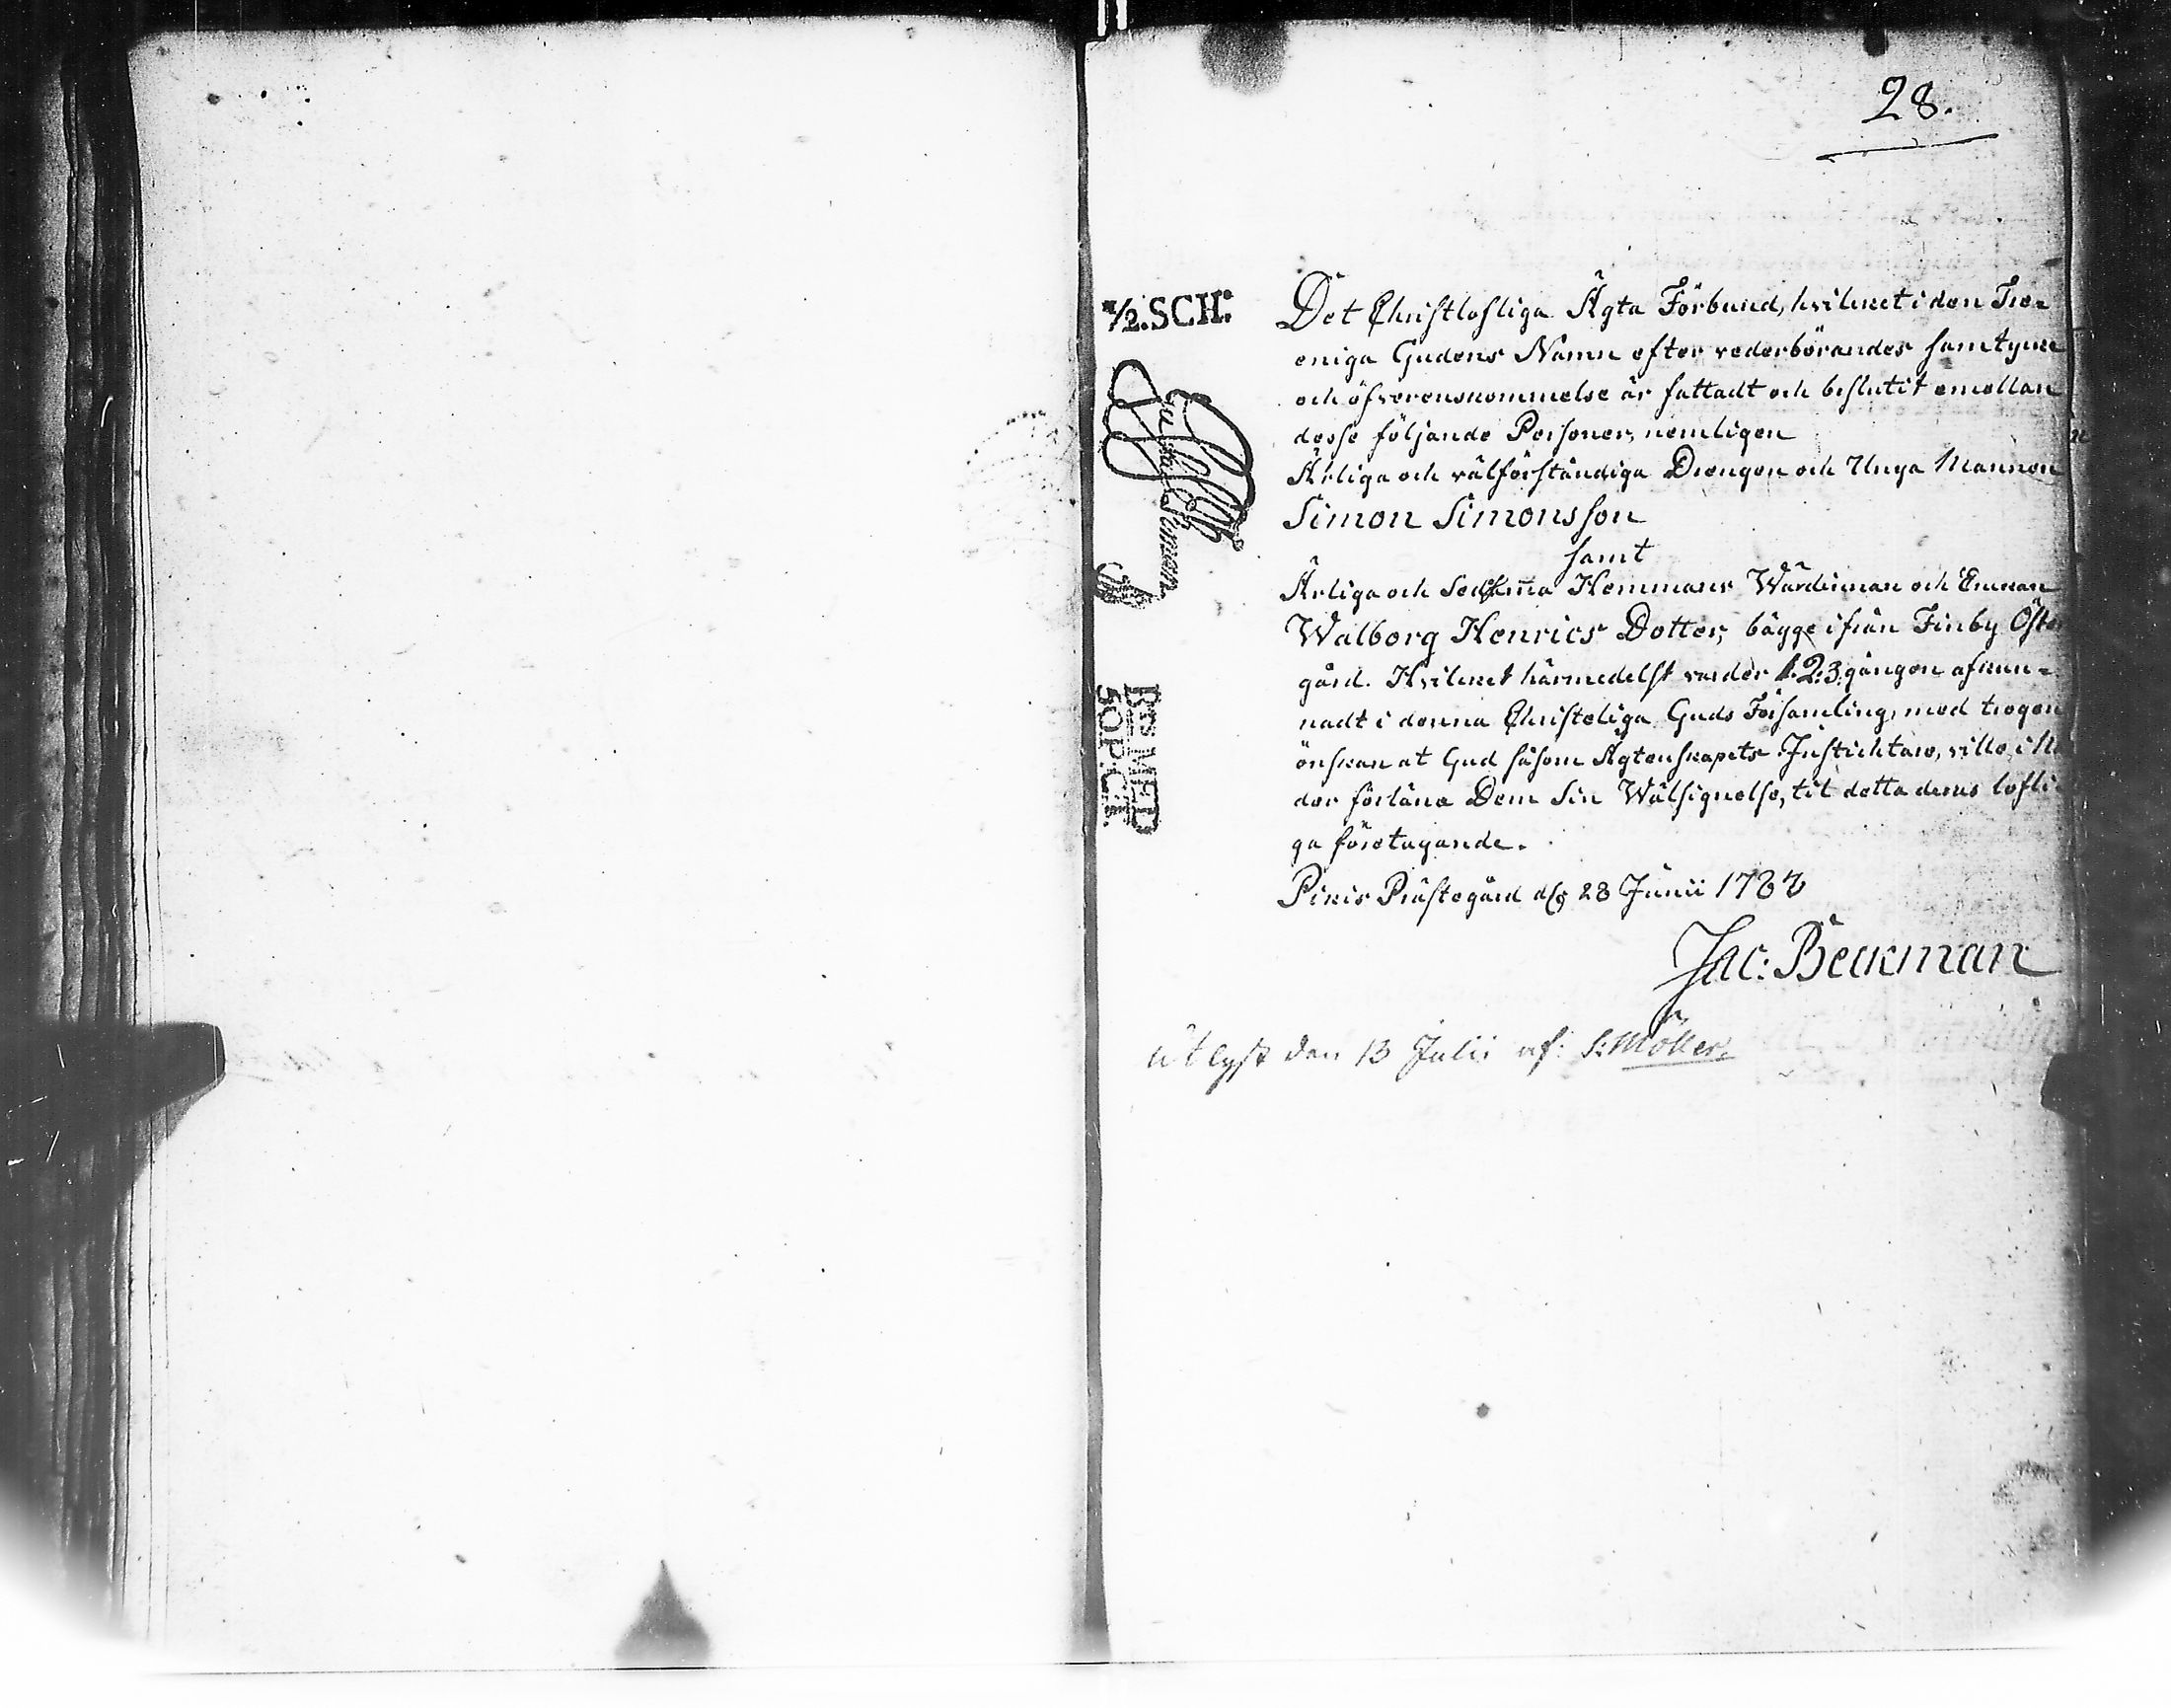 28.
½.SCH:
Det Christlofliga Ägta Förbund, hvilket i den Tre-
eniga Gudens Namn efter vederbörandes samtycke
och öfverenskommelse är fattadt och beslutit emellan
desse följande Personer, nemligen
Ärliga och välförståndiga Drengen och Unga Mannen
Simon Simonsson
samt
Ärliga och Sedesamma Hemmans Wärdinnan och Enkan
Walborg Henrics Dotter, bägge ifrån Finby Öster
gård. Hvilket härmedelst varder 1.2.3. gången afkun-
nadt i denna Christeliga Guds Församling, med trogen
önskan at Gud såsom Ägtenskapets Instichtare, ville i
der förläna Dem Sin Wälsignelse, til detta deras lofli-
ga företagande.
Pikis Prästegård d. 28 Junii 1783
Jac: Beckman
Utlyst den 13 Julii af: S: Möller.